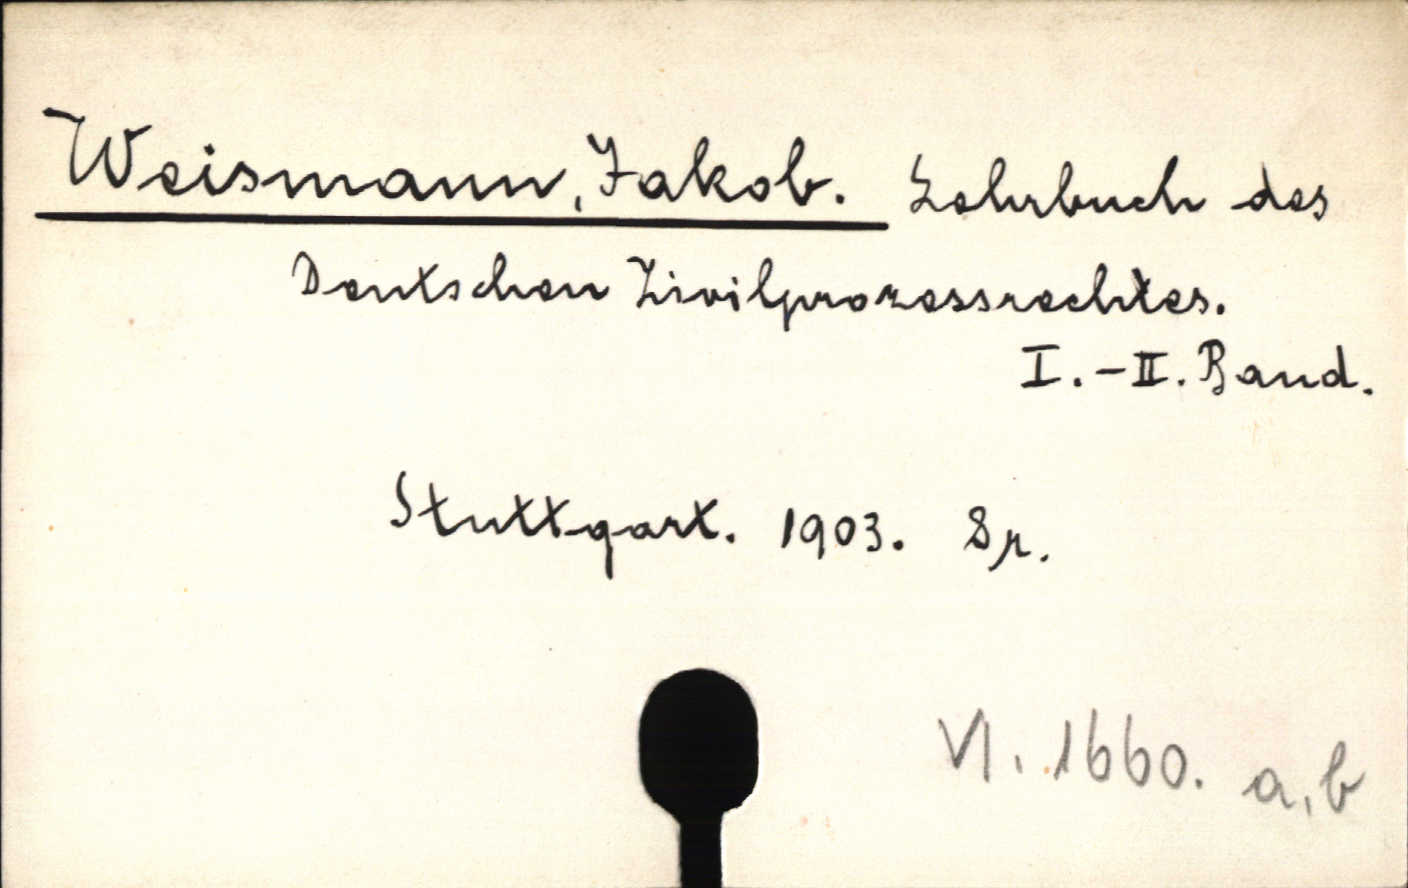 Weismann, Jakob. Lehrbuch des
Deutschen Zivilprozessrechtes.
I.-II. Band.
Stuttgart. 1903. 8r.
VI. 1660. a,b